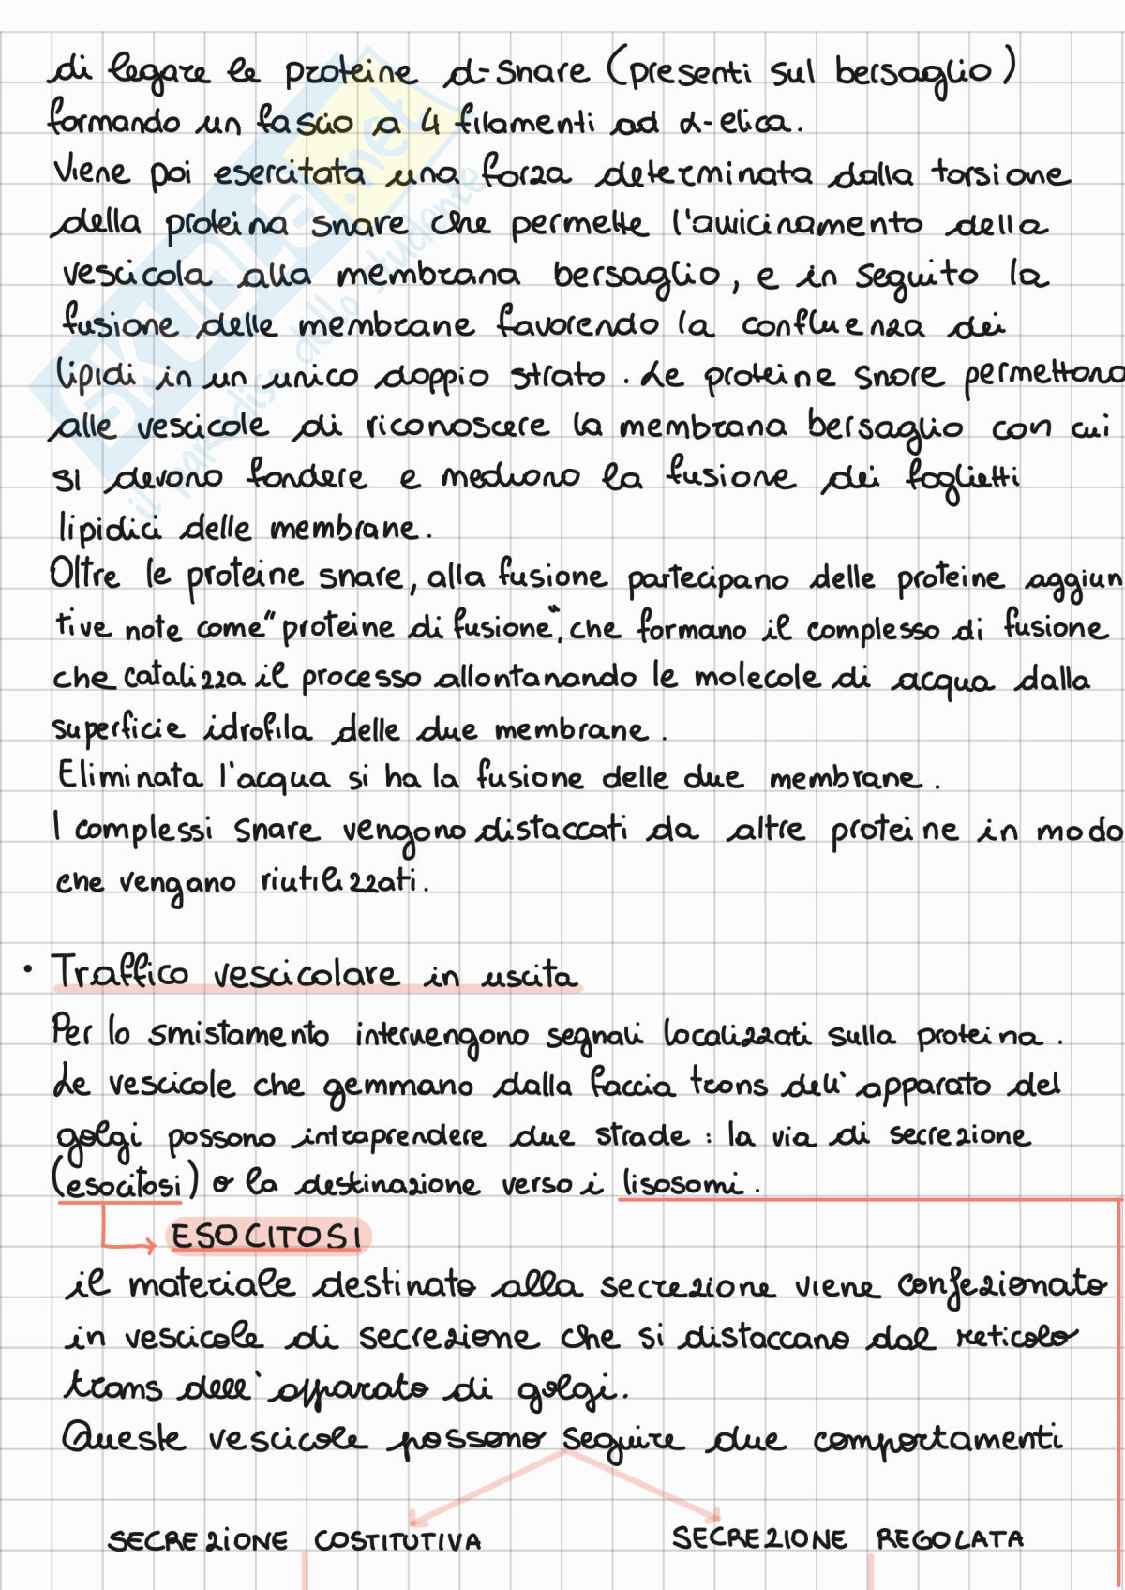 di legare le proteine d-snare (presenti sul bersaglio)
formando un fascio a 4 filamenti ad α-elica.
Viene poi esercitata una forza determinata dalla torsione
della proteina snare che permette l'avvicinamento della
vescicola alla membrana bersaglio, e in seguito la
fusione delle membrane favorendo la confluenza dei
lipidi in un unico doppio strato. Le proteine snare permettono
alle vescicole di riconoscere la membrana bersaglio con cui
si devono fondere e mediano la fusione dei foglietti
lipidici delle membrane.
Oltre le proteine snare, alla fusione partecipano delle proteine aggiun
tive note come "proteine di fusione", che formano il complesso di fusione
che catalizza il processo allontanando le molecole di acqua dalla
superficie idrofila delle due membrane.
Eliminata l'acqua si ha la fusione delle due membrane.
I complessi snare vengono distaccati da altre proteine in modo
che vengano riutilizzati.
• Traffico vescicolare in uscita
Per lo smistamento intervengono segnali localizzati sulla proteina.
Le vescicole che gemmano dalla faccia trans dell'apparato del
golgi possono intraprendere due strade: la via di secrezione
(esocitosi) o la destinazione verso i lisosomi.
ESOCITOSI
il materiale destinato alla secrezione viene confezionato
in vescicole di secrezione che si distaccano dal reticolo
trans dell'apparato di golgi.
Queste vescicole possono seguire due comportamenti
SECREZIONE COSTITUTIVA
SECREZIONE REGOLATA
SKUOLA.net
il paradiso dello studente